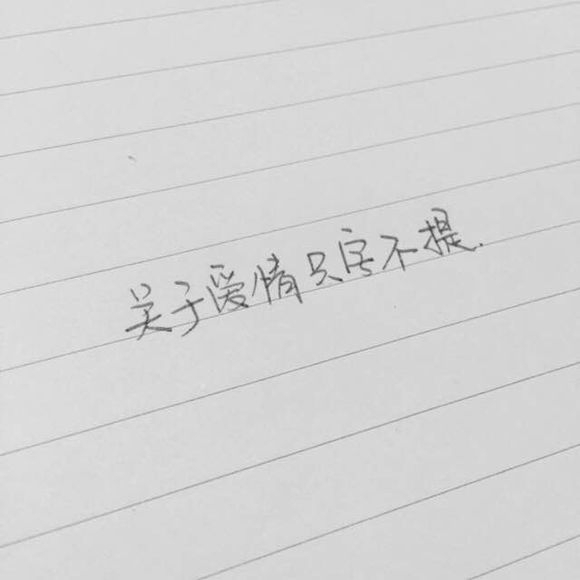 关于爱情只字不提.